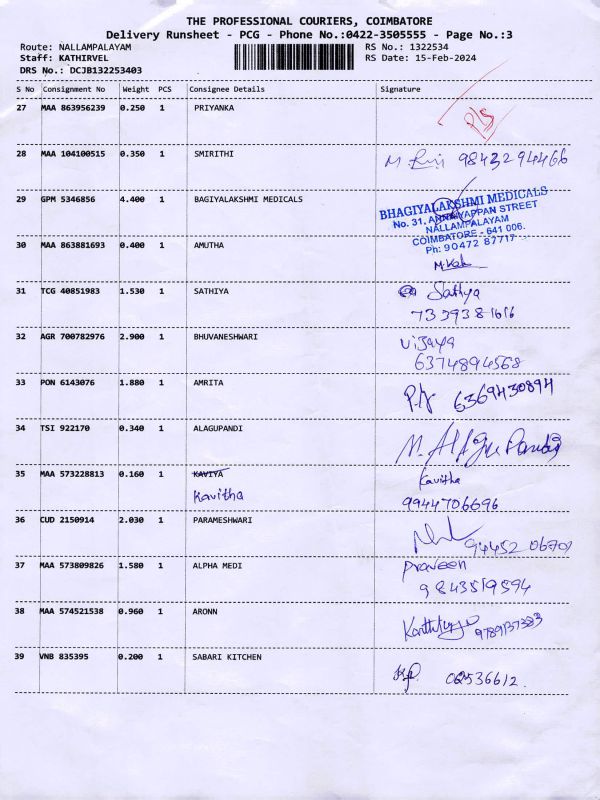 THE PROFESSIONAL COURIERS, COIMBATORE
Delivery Runsheet - PCG - Phone No.:0422-3505555 - Page No.:3
Route: NALLAMPALAYAM RS No.: 1322534
Staff: KATHIRVEL RS Date: 15-Feb-2024
DRS No.: DCJB132253403
S No Consignment No Weight PCS Consignee Details Signature
27 MAA 863956239 0.250 1 PRIYANKA
28 MAA 104100515 0.350 1 SMIRITHI
9843294466
29 GPM 5346856 4.400 1 BAGIYALAKSHMI MEDICALS
BHAGIYALAKSHMI MEDICALS
No. 31, ANNAIYAPPAN STREET
NALLAMPALAYAM
COIMBATORE - 641 006.
Ph: 90472 87717
30 MAA 863881693 0.400 1 AMUTHA
31 TCG 40851983 1.530 1 SATHIYA
Sathya
7339381616
32 AGR 700782976 2.900 1 BHUVANESHWARI
Vijaya
6374894568
33 PON 6143076 1.880 1 AMRITA
6369430894
34 TSI 922170 0.340 1 ALAGUPANDI
35 MAA 573228813 0.160 1 KAVIYA
Kavitha Kavitha
9944706696
36 CUD 2150914 2.030 1 PARAMESHWARI
37 MAA 573809826 1.580 1 ALPHA MEDI
Praveen
9843519594
38 MAA 574521538 0.960 1 ARONN
9789137383
39 VNB 835395 0.200 1 SABARI KITCHEN